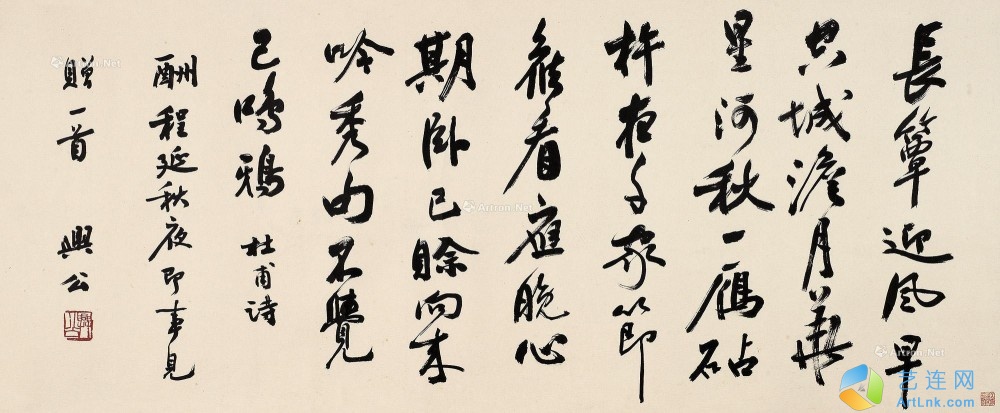 長簟迎風早
空城澹月華
星河秋一鴈砧
杵夜千家節
候看應晚心
期卧已賒向來
吟秀句不覺
已鳴鴉 杜甫詩
酬程延秋夜即事見
贈一首 興公
Artron.Net
艺连网
ArtLnk.com